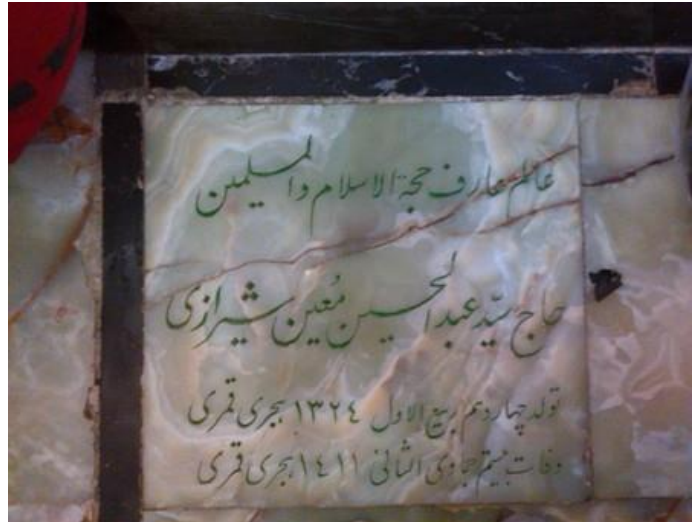 عالم عارف حجة الاسلام والمسلمین
حاج سیّد عبدالحسین مُعین شیرازی
تولد چهاردهم ربیع الاول ١٣٢٤ هجری قمری
وفات بیستم جمادی الثانی ١٤١١ هجری قمری